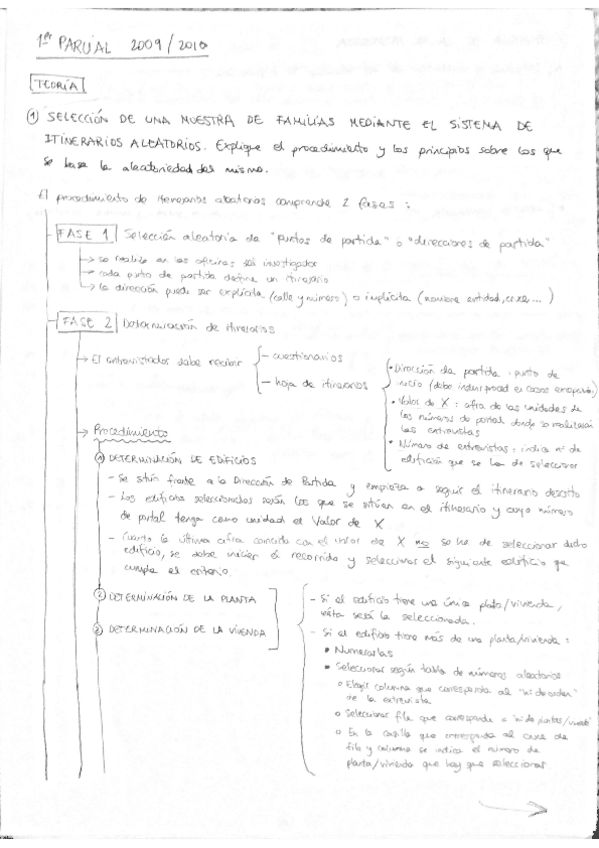 1er PARCIAL 2009/2010
TEORÍA
① SELECCIÓN DE UNA MUESTRA DE FAMILIAS MEDIANTE EL SISTEMA DE
ITINERARIOS ALEATORIOS. Explique el procedimiento y los principios sobre los que
se basa la aleatoriedad del mismo.
El procedimiento de itinerarios aleatorios comprende 2 fases:
FASE 1 Selección aleatoria de "puntos de partida" o "direcciones de partida"
→ se realiza en las oficinas del investigador
→ cada punto de partida define un itinerario
→ la dirección puede ser explícita (calle y número) o implícita (nombre entidad, cruce...)
FASE 2 Determinación de itinerarios
→ El entrevistador debe recibir
- cuestionarios
- hoja de itinerarios
• Dirección de partida: punto de
inicio (debe incluir en casos
• Valor de X: cifra de las unidades de
los números de portal donde se realizarán
las entrevistas
• Número de entrevistas: indica nº de
edificios que se ha de seleccionar
→ Procedimiento
① DETERMINACIÓN DE EDIFICIOS
- Se sitúa frente a la Dirección de Partida y empieza a seguir el itinerario descrito
- Los edificios seleccionados serán los que se sitúan en el itinerario y cuyo número
de portal tenga como unidad el Valor de X
- Cuando la última cifra coincida con el valor de X no se ha de seleccionar dicho
edificio, se debe iniciar el recorrido y seleccionar el siguiente edificio que
cumpla el criterio.
② DETERMINACIÓN DE LA PLANTA
③ DETERMINACIÓN DE LA VIVIENDA
- Si el edificio tiene una única planta/vivienda,
ésta será la seleccionada.
- Si el edificio tiene más de una planta/vivienda:
• Numerarlas
• Seleccionar según tabla de números aleatorios
o Elegir columna que corresponda al "nº de orden"
de la entrevista
o Seleccionar fila que corresponde a "nº de plantas/viviendas"
o En la casilla que corresponda al cruce de
fila y columna se indica el número de
planta/vivienda que hay que seleccionar